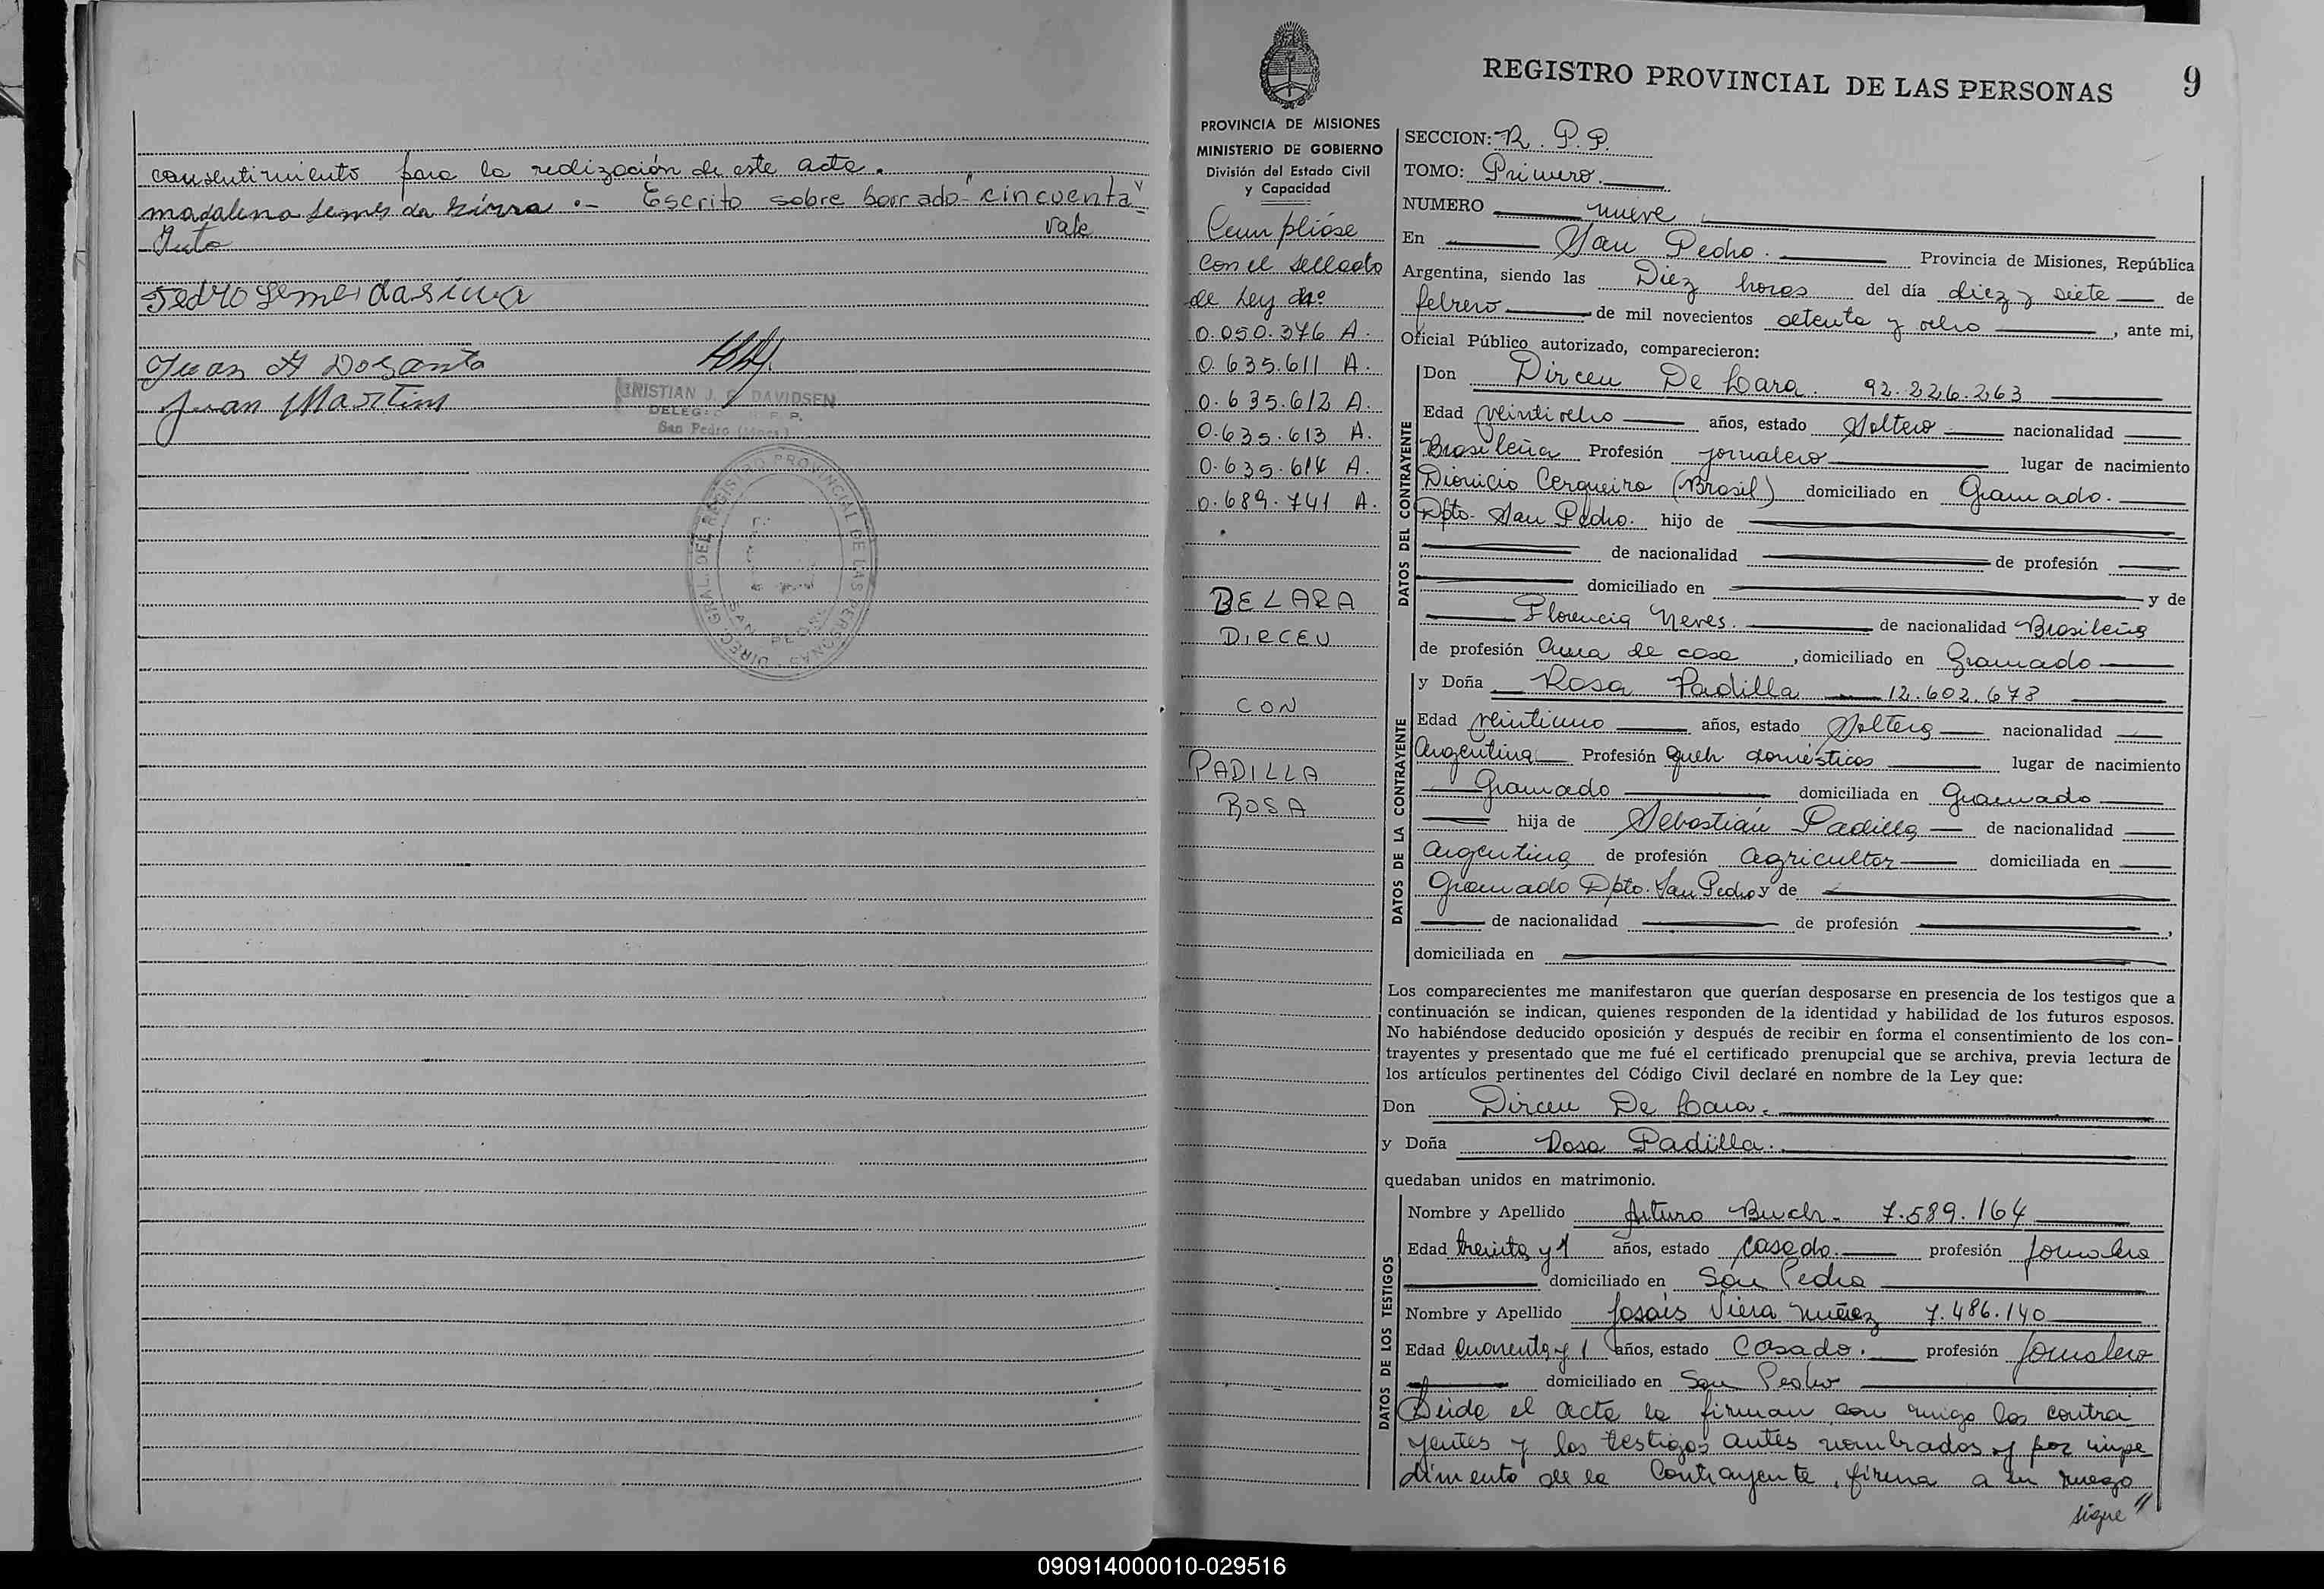 consentimiento para la realización de este acto.
madalena lemes da      .- Escrito sobre borrado "cincuenta"
vale
Pedro Lemes da Silva
Juan A Dosanto
Juan Martins
CRISTIAN J. DAVIDSEN
DELEG R. P.
San Pedro (Mnes.)
DIREC. GRAL. DEL REGISTRO PROVINCIAL DE LAS PERSONAS
SAN PEDRO
REGISTRO PROVINCIAL DE LAS PERSONAS 9
PROVINCIA DE MISIONES
MINISTERIO DE GOBIERNO
División del Estado Civil
y Capacidad
Cumplióse
con el sellado
de Ley nº
0.050.376 A.
0.635.611 A.
0.635.612 A.
0.635.613 A.
0.635.614 A.
0.689.741 A.
DELARA
DIRCEU
CON
PADILLA
ROSA
SECCION: R. P. P.
TOMO: Primero.
NUMERO nueve
En San Pedro. Provincia de Misiones, República
Argentina, siendo las Diez horas del día diez y siete de
febrero de mil novecientos setenta y ocho, ante mi,
Oficial Público autorizado, comparecieron:
DATOS DEL CONTRAYENTE
Don Dirceu De Lara. 92.226.263
Edad veintiocho años, estado Soltero nacionalidad
Brasileña Profesión jornalero lugar de nacimiento
Dionicio Cerqueira (Brasil) domiciliado en Gramado.
Dpto. San Pedro. hijo de
de nacionalidad de profesión
domiciliado en y de
Florencia Neves. de nacionalidad Brasileña
de profesión Ama de casa, domiciliado en Gramado
DATOS DE LA CONTRAYENTE
y Doña Rosa Padilla 12.602.678
Edad veintiuno años, estado Soltera nacionalidad
Argentina Profesión queh. domésticos lugar de nacimiento
Gramado domiciliada en Gramado
hija de Sebastián Padilla de nacionalidad
Argentina de profesión Agricultor domiciliada en
Gramado Dpto. San Pedro y de
de nacionalidad de profesión ,
domiciliada en
Los comparecientes me manifestaron que querían desposarse en presencia de los testigos que a
continuación se indican, quienes responden de la identidad y habilidad de los futuros esposos.
No habiéndose deducido oposición y después de recibir en forma el consentimiento de los con-
trayentes y presentado que me fué el certificado prenupcial que se archiva, previa lectura de
los artículos pertinentes del Código Civil declaré en nombre de la Ley que:
Don Dirceu De Lara.
y Doña Rosa Padilla.
quedaban unidos en matrimonio.
DATOS DE LOS TESTIGOS
Nombre y Apellido Arturo Buch. 7.589.164
Edad treinta y 1 años, estado casado. profesión jornalero
domiciliado en San Pedro
Nombre y Apellido Josais Viera Nuñez 7.486.140
Edad cuarenta y 1 años, estado Casado. profesión jornalero
domiciliado en San Pedro
Leida el acta la firman con migo los contra
yentes y los testigos antes nombrados y por impe
dimento de la Contrayente, firma a su ruego
sigue //
090914000010-029516